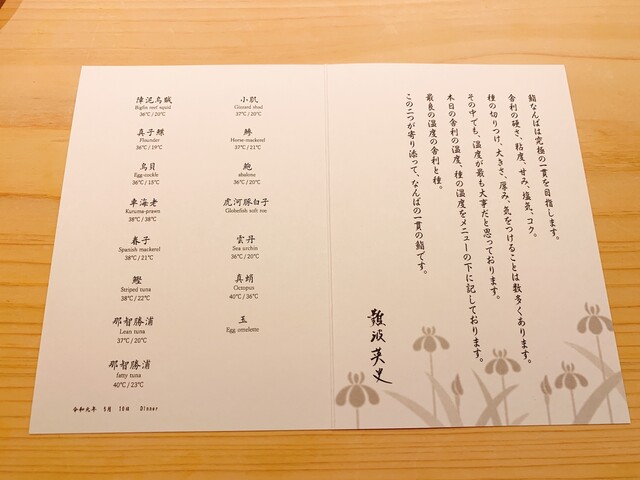 障泥烏賊
Bigfin reef squid
36℃/20℃
真子鰈
Flounder
36℃/19℃
鳥貝
Egg-cockle
36℃/15℃
車海老
Karuma-prawn
38℃/38℃
春子
Spanish mackerel
38℃/21℃
鰹
Striped tuna
38℃/22℃
那智勝浦
Lean tuna
37℃/20℃
那智勝浦
fatty tuna
40℃/23℃
小肌
Gizzard shad
37℃/20℃
鯵
Horse-mackerel
37℃/21℃
鮑
abalone
36℃/20℃
虎河豚白子
Globefish soft roe
雲丹
Sea urchin
36℃/20℃
真蛸
Octopus
40℃/36℃
玉
Egg omelette
令和元年 5月 10日 Dinner
鮨なんばは究極の一貫を目指します。
舎利の硬さ、粘度、甘み、塩気、コク。
種の切りつけ、大きさ、厚み、気をつけることは数多くあります。
その中でも、温度が最も大事だと思っております。
本日の舎利の温度、種の温度をメニューの下に記しております。
最良の温度の舎利と種。
この二つが寄り添って、なんばの一貫の鮨です。
難波英史